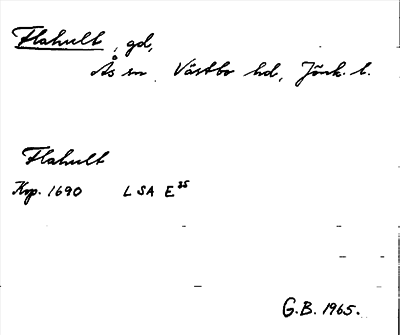 Flahult, gd,
Ås sn Västbo hd, Jönk. l.
Flahult
Krp. 1690 LSA E 35
G.B. 1965.